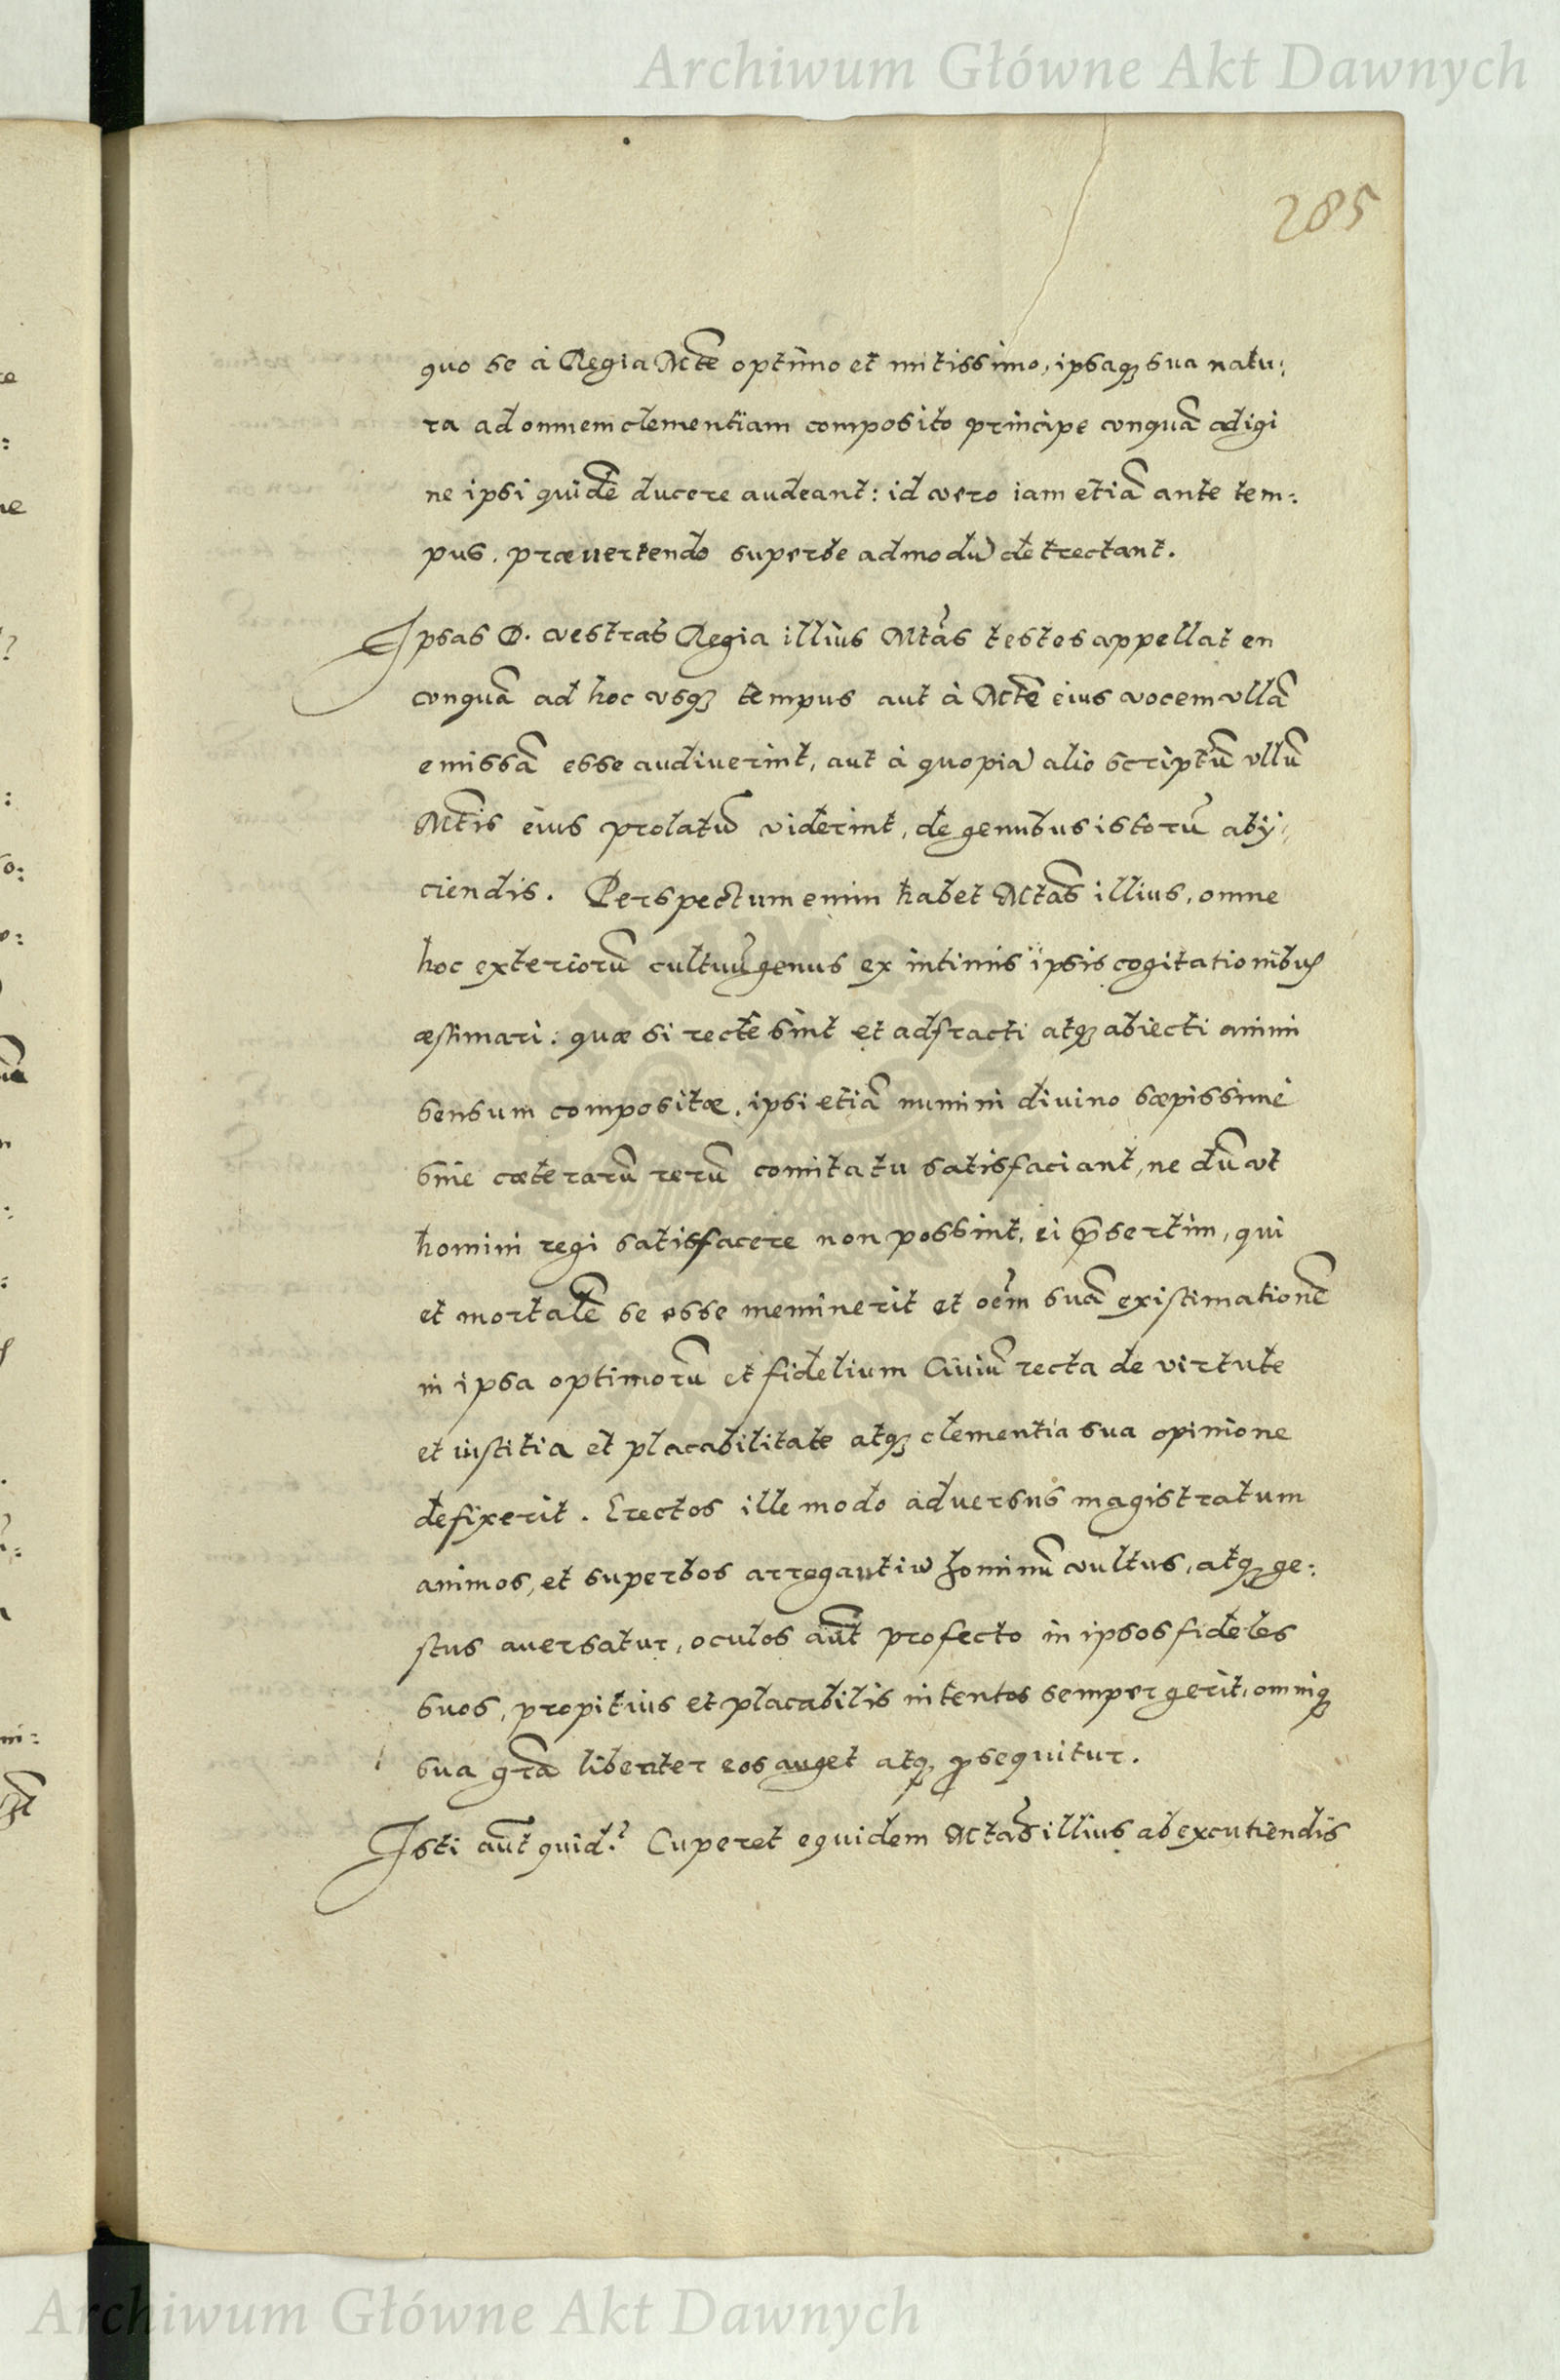 Archiwum Główne Akt Dawnych
285
quo se à Regia Mtẽ optimo et mitissimo, ipsaqꝫ sua natu:
ra ad omnem clementiam composito principe vnquã adigi
ne ipsi quidẽ ducere audeant: id vero iam etiã ante tem:
pus, præuertendo superbe admodũ detrectant.
Ipsas D. vestras Regia illius Mtãs testes appellat en
vnquã ad hoc vsqꝫ tempus aut à Mtẽ eius vocem vllã
emissã esse audiuerint, aut à quopiã alio scriptũ vllũ
Mtĩs eius prolatũ viderint, de genubus istorũ abij
ciendis. Perspectum enim habet Mtãs illius, omne
hoc exteriorũ cultuũ genus ex intimis ipsis cogitationibus
æstimari: quæ si rectè sint et adfracti atqꝫ abiecti animi
sensum compositæ, ipsi etiã numini diuino sæpissimè
sine cæterarũ rerũ comitatu satisfaciant, ne dũ vt
homini regi satisfacere non possint, ei p̃sertim, qui
et mortalẽ se esse meminerit et oẽm suã existimationẽ
in ipsa optimorũ et fidelium Ciuiũ recta de virtute
et iustitia et placabilitate atqꝫ clementia sua opinione
defixerit. Erectos ille modo aduersus magistratum
animos, et superbos arrogantiũ hominũ vultus, atqꝫ ge:
stus auersatur, oculos aũt profecto in ipsos fideles
suos, propitius et placabilis intentos semper gerit, omniqꝫ
sua gr̃a libenter eos auget atqꝫ ꝓsequitur.
Isti aũt quid? Cuperet equidem Mtãs illius ab excutiendis
Archiwum Główne Akt Dawnych